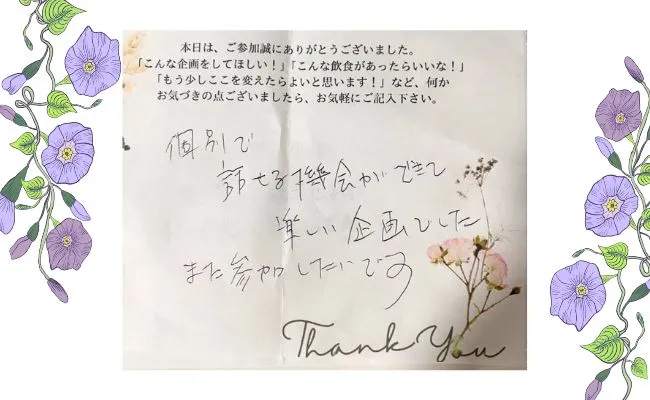 本日は、ご参加誠にありがとうございました。
「こんな企画をしてほしい！」「こんな飲食があったらいいな！」
「もう少しここを変えたらよいと思います！」など、何か
お気づきの点ございましたら、お気軽にご記入下さい。
個別で
話せる機会ができて
楽しい企画でした
また参加したいです
Thank You